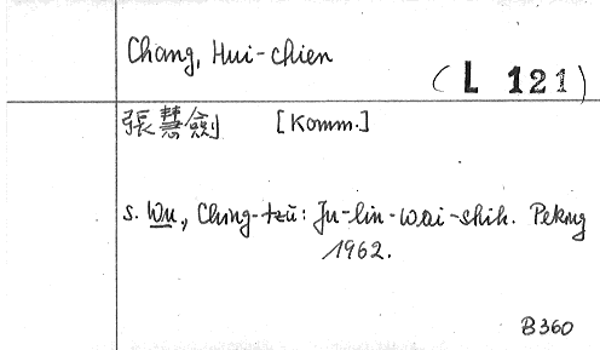 Chang, Hui-chien
(L 121)
張慧劍 [Komm.]
s. Wu, Ching-tzŭ: Ju-lin-wai-shih. Peking
1962.
B360